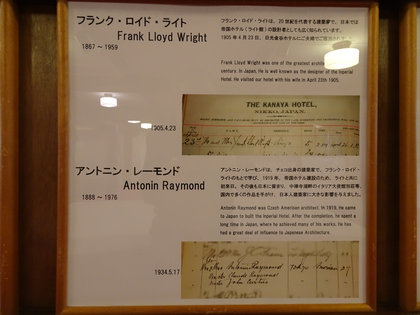 フランク・ロイド・ライト
Frank Lloyd Wright
1867 ～ 1959
フランク・ロイド・ライトは、20 世紀を代表する建築家で、日本では
帝国ホテル(ライト館)の設計者としても広く知られています。
1905 年 4 月 23 日、日光金谷ホテルにご夫婦でご宿泊
Frank Lloyd Wright was one of the greatest
century. In Japan, He is well known as the designer of the Imperial
Hotel. He visited our hotel with his wife in April 23th 1905.
1905.4.23
THE KANAYA HOTEL,
NIKKO, JAPAN.
アントニン・レーモンド
Antonin Raymond
1888 ～ 1976
アントニン・レーモンドは、チェコ出身の建築家で、フランク・ロイド・
ライトのもとで学び、1919 年、帝国ホテル建設のため、ライトと共に
初来日。その後も日本に留まり、中禅寺湖畔のイタリア大使館別荘等、
国内で多くの作品を手がけ、日本人建築家に大きな影響を与えました。
Antonin Raymond was Czech American architect. In 1919, He came
to Japan to built the Imperial Hotel. After the completion, he spent a
long time in Japan, where he achieved many of his works. He has
had a great deal of influence to Japanese Architecture.
1934.5.17
Antonin Raymond Tokyo